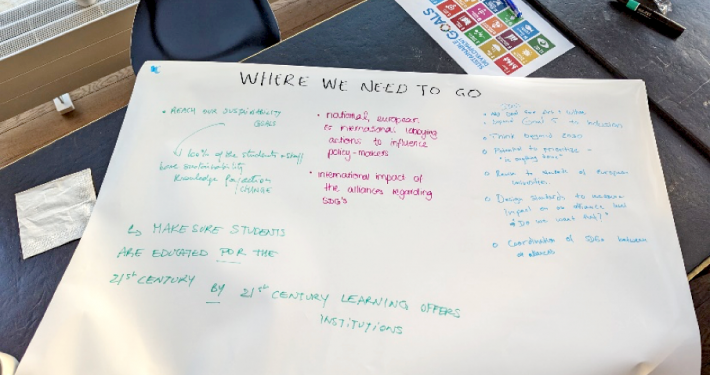 WHERE WE NEED TO GO
• REACH OUR SUSTAINABILITY
GOALS
↳ 100% of the students + staff
have sustainability
knowledge for action
/CHANGE
↳ MAKE SURE STUDENTS
ARE EDUCATED FOR THE
21st CENTURY BY 21st CENTURY LEARNING OFFERS
INSTITUTIONS
• national, european
or international lobbying
actions to influence
policy-makers
• international impact of
the alliances regarding
SDG's
Goal 5 to
• Think beyond 2030
• Potential to prioritize -
is anything
of European
universities
• Design standards to measure
impact on alliance level
"Do we want that?"
• Coordination of SDGs between
alliances
SUSTAINABLE
DEVELOPMENT
GOALS